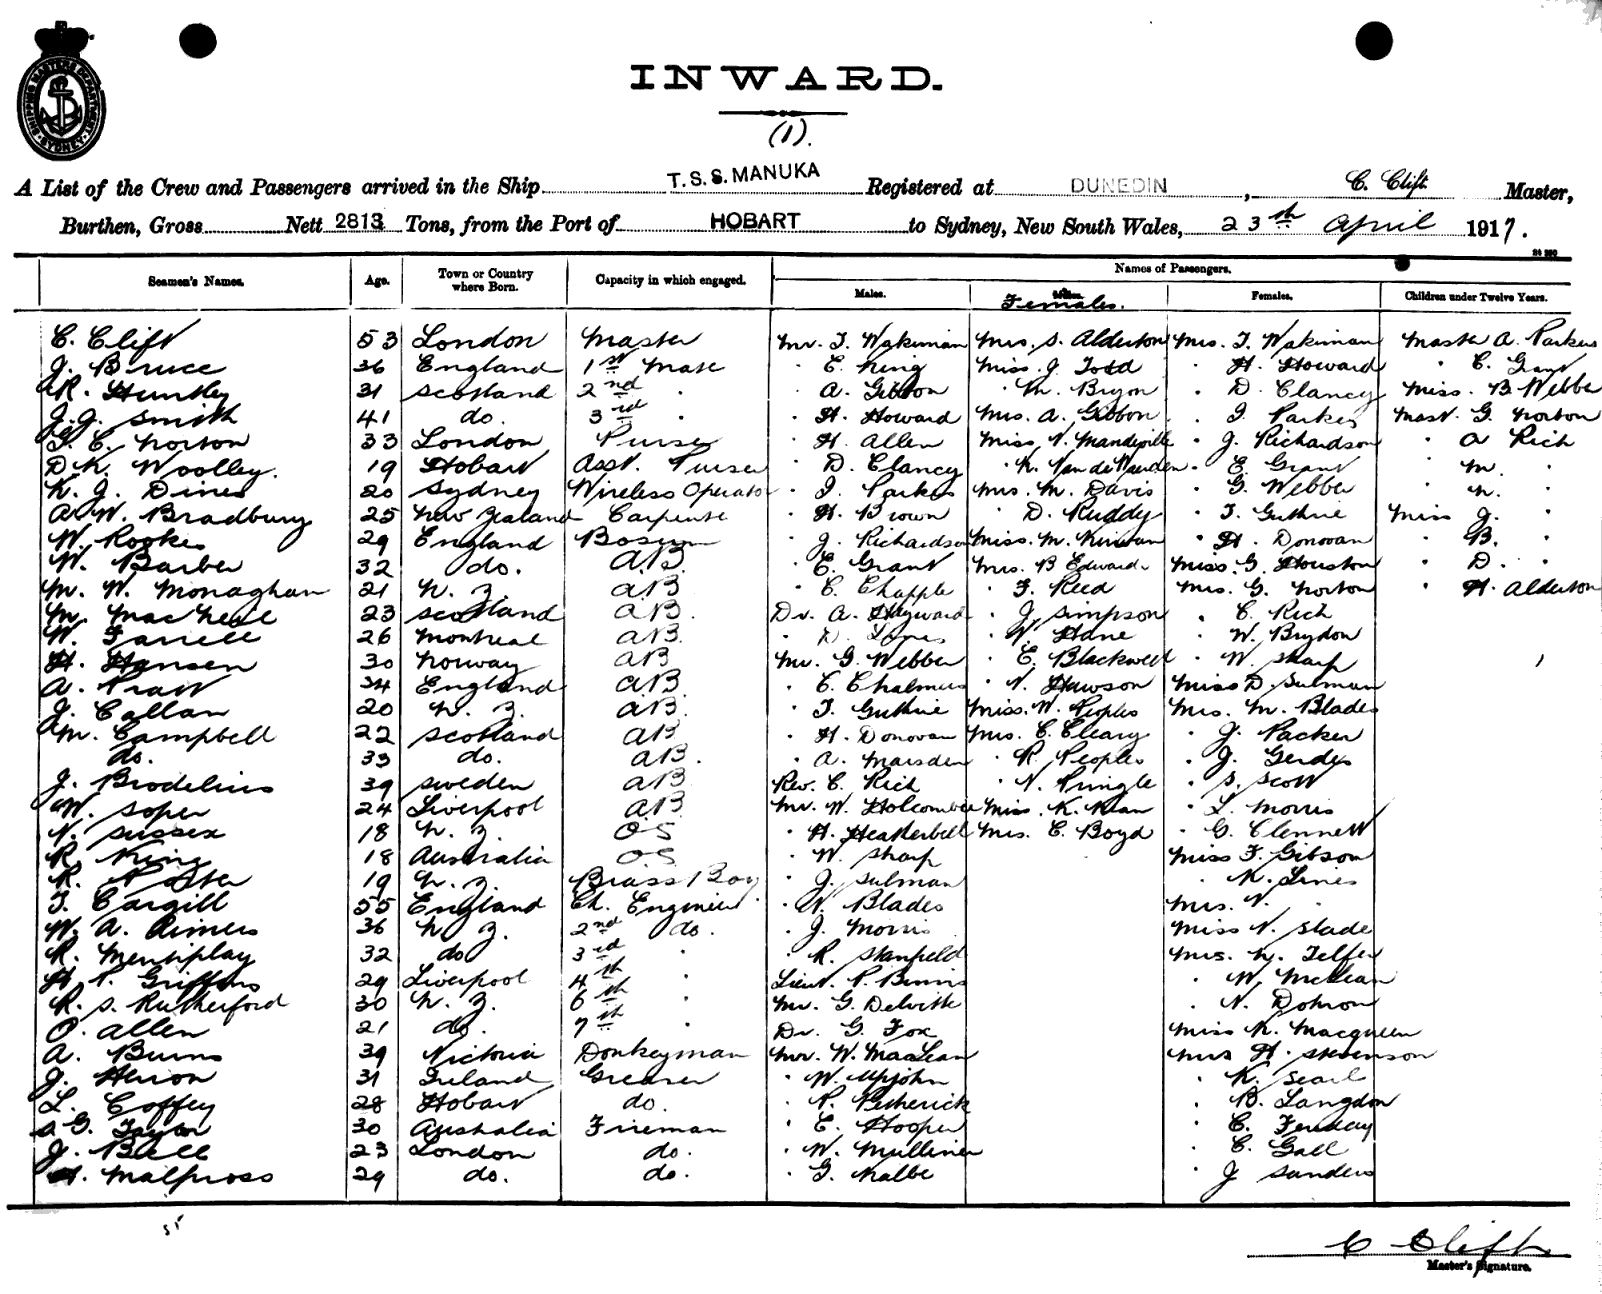 SHIPPING MASTERS DEPARTMENT SYDNEY
INWARD.
(1).
A List of the Crew and Passengers arrived in the Ship T.S.S. MANUKA Registered at DUNEDIN, C. Clift Master,
Burthen, Gross Nett 2813 Tons, from the Port of HOBART to Sydney, New South Wales, 23th April 1917.
Seamen's Names. Age. Town or Country where Born. Capacity in which engaged. Names of Passengers.
Males. Females. Females. Children under Twelve Years.
C. Clift 53 London Master Mr. T. Wakeman Mrs. S. Alderton Mrs. T. Wakeman Maste A. Parkes
J. Bruce 36 England 1st Mate " E. King Miss. J. Todd " H. Howard " C. Grant
R. Huntley 31 Scotland 2nd " " A. Gibbon " M. Bryon " D. Clancy Miss. B. Webber
J.J. Smith 41 do. 3rd " " H. Howard Mrs. A. Gibbon " I. Parkes Mast. G. Norton
T. C. Norton 33 London Purser " H. Allen Miss N. Mandeville " J. Richardson " A Rich
D.K. Woolley. 19 Hobart Asst. Purser " D. Clancy " K. " E. Grant " M. "
K. J. Dines 20 Sydney Wireless Operator " I. Parkes Mrs. M. Davis " G. Webber " N. "
A. W. Bradbury 25 New Zealand Carpenter " H. Brown " D. Ruddy " T. Guthrie Miss J. "
W. Rookes 29 England Bosun " J. Richardson Miss. M. Kirwan " H. Donovan " B. "
W. Barber 32 do. AB. " E. Grant Mrs. B Edwards Miss. G. Houston " D. "
M. W. Monaghan 21 N. Z. AB " C. Chapple " F. Reed Mrs. G. Norton " H. Alderton
M. MacNeil 23 Scotland AB. Dr. A. Hayward " J. Simpson " C. Rich
W. Farrell 26 Montreal AB. " D. " W. Hane " W. Brydon
H. Hansen 30 Norway AB Mr. G. Webber " E. Blackwell " W. Sharp
A. Pratt 34 England AB. " C. Chalmers " N. Hawson Miss D. Sulman
J. Callan 20 N. Z. AB. " T. Guthrie Miss. W. Peoples Mrs. M. Blades
M. Campbell 22 Scotland AB " H. Donovan Mrs. C. Cleary " J. Packer
do. 33 do. AB. " A. Marsden " R. Peoples " J. Gerdes
J. Brodelius 39 Sweden AB Rev. C. Rich " N. Pringle " S. Scott
W. Soper 24 Liverpool AB. Mr. W. Holcombe Miss. K. Kean " L. Morris
N. Sussex 18 N. Z. OS " H. Heatherbell Mrs. C. Boyd " G. Clennett
R. King 18 Australia OS " W. Sharp Miss F. Gibson
R. 19 N. Z. Brass Boy " J. Sulman " K. Lines
T. Cargill 55 England Ch. Engineer " N. Blades Mrs. N. "
W. A. Aimers 36 N Z. 2nd do. " J. Morris Miss N. Slade
R. Mentiplay 32 do 3rd " " R. Stanfield Mrs. N. Telfer
H P. Griffiths 29 Liverpool 4th " Lieut. P. Binns " W. McLean
R. S. Rutherford 30 N. Z. 6th " Mr. G. Delvitte " N. Dohron
O. Allen 21 do. 7th " Dr. G. Fox Miss K. Macqueen
A. Burns 39 Victoria Donkeyman Mr. W. MacLean Mrs H. Stevenson
J. Heron 31 Ireland Greaser " W. Upjohn " K. Searl
L. Coffey 28 Hobart do. " P. Petherick " B. Langdon
G. Taylor 30 Australia Fireman " E. Hooper " C.
J. Bell 23 London do. " W. Mulliner " C. Gall
H. Malpross 29 do. do. " G. Kalbe " J Sanders
C Clift
Master's Signature.